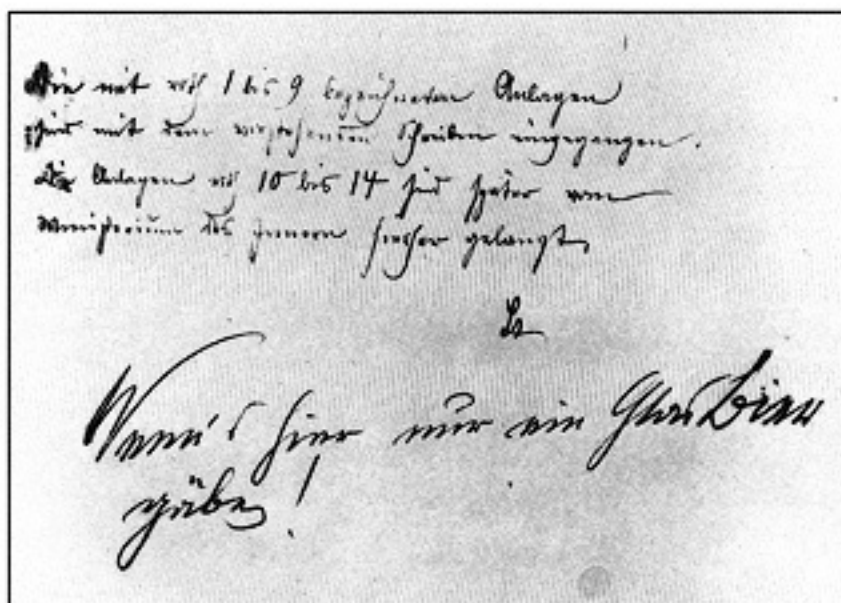 Die mit 1 bis 9 bezeichneten Anlagen
sind mit dem vorstehenden Schreiben eingegangen.
Die Anlagen 10 bis 14 sind später vom
Ministerium des Innern hierher gelangt
Wenn's hier nur ein Glas Bier
gäbe!